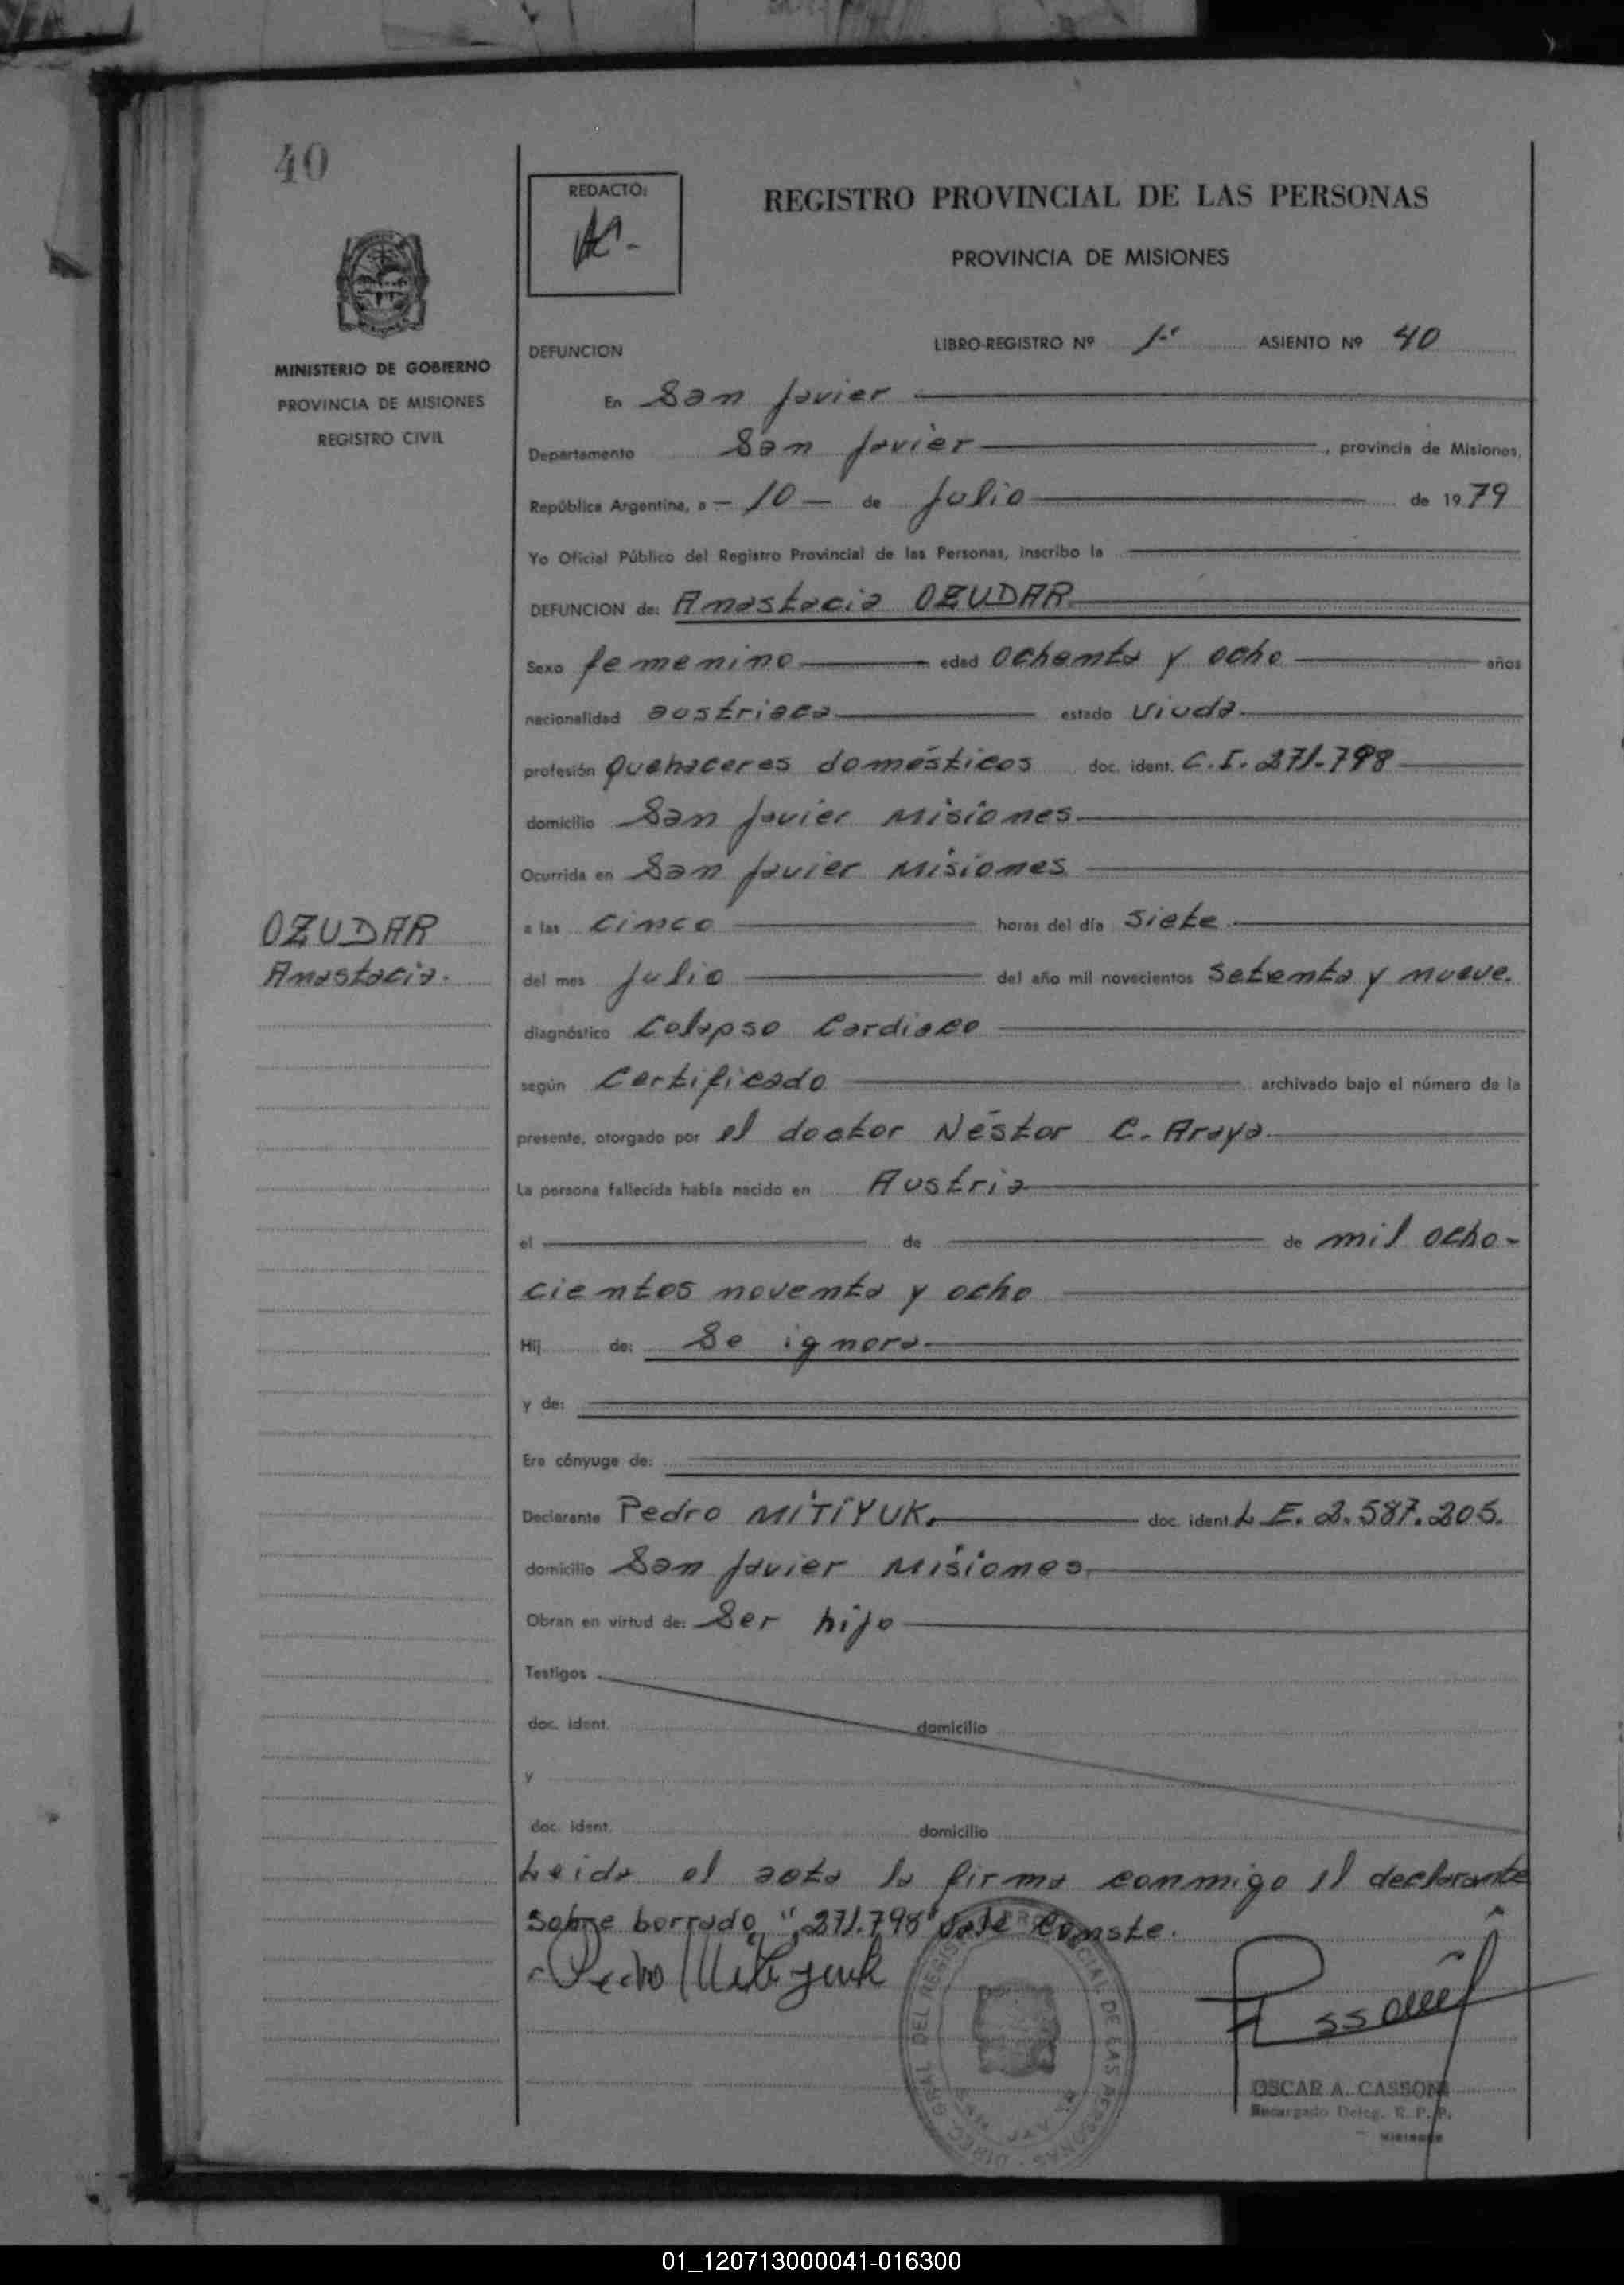 40
REDACTO:
REGISTRO PROVINCIAL DE LAS PERSONAS
PROVINCIA DE MISIONES
MINISTERIO DE GOBIERNO
PROVINCIA DE MISIONES
REGISTRO CIVIL
DEFUNCION LIBRO-REGISTRO Nº 1º ASIENTO Nº 40
En San Javier
Departamento San Javier, provincia de Misiones,
República Argentina, a - 10 - de Julio de 1979
Yo Oficial Público del Registro Provincial de las Personas, inscribo la
DEFUNCION de: Anastacia OZUDAR
Sexo femenino edad ochenta y ocho años
nacionalidad austriaca estado viuda
profesión Quehaceres domésticos doc. ident. C.I. 271.798
domicilio San Javier Misiones
Ocurrida en San Javier Misiones
OZUDAR
Anastacia.
a las cinco horas del día siete
del mes Julio del año mil novecientos setenta y nueve.
diagnóstico Colapso Cardiaco
según Certificado archivado bajo el número de la
presente, otorgado por el doctor Néstor C. Araya
La persona fallecida había nacido en Austria
el de de mil ocho-
cientos noventa y ocho
Hij de: Se ignora
y de:
Era cónyuge de:
Declarante Pedro MITIYUK. doc. ident. L.E. 2.587.205.
domicilio San Javier Misiones
Obran en virtud de: Ser hijo
Testigos
doc. ident. domicilio
y
doc. ident. domicilio
Leida el acta la firma conmigo el declarante
Sobre borrado "271.798" Vale Conste.
Pedro Mitiyuk
OSCAR A. CASSONI
Encargado Deleg. R. P. P.
MISIONES
01_120713000041-016300